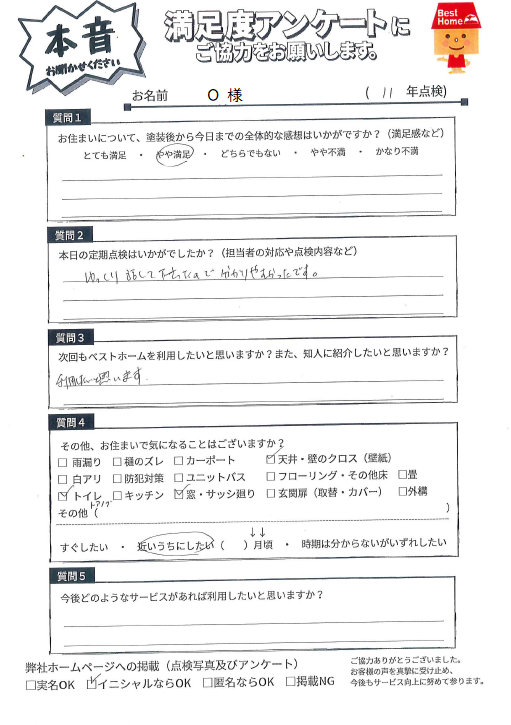 本音
お聞かせください
満足度アンケートに
ご協力をお願いします。
Best Home
お名前 O 様 ( 11 年点検)
質問1
お住まいについて、塗装後から今日までの全体的な感想はいかがですか?(満足感など)
とても満足 ・ やや満足 ・ どちらでもない ・ やや不満 ・ かなり不満
質問2
本日の定期点検はいかがでしたか?(担当者の対応や点検内容など)
ゆっくり話して下さったので分かりやすかったです。
質問3
次回もベストホームを利用したいと思いますか?また、知人に紹介したいと思いますか?
利用したいと思います。
質問4
その他、お住まいで気になることはございますか?
□ 雨漏り □ 樋のズレ □ カーポート ☑ 天井・壁のクロス(壁紙)
□ 白アリ □ 防犯対策 □ ユニットバス □ フローリング・その他床 □畳
☑ トイレ □ キッチン ☑ 窓・サッシ廻り □ 玄関扉(取替・カバー) □外構
ドアノブ
その他( )
↓↓
すぐしたい ・ 近いうちにしたい( )月頃 ・ 時期は分からないがいずれしたい
質問5
今後どのようなサービスがあれば利用したいと思いますか?
弊社ホームページへの掲載(点検写真及びアンケート)
□実名OK ☑イニシャルならOK □匿名ならOK □掲載NG
ご協力ありがとうございました。
お客様の声を真摯に受け止め、
今後もサービス向上に努めて参ります。